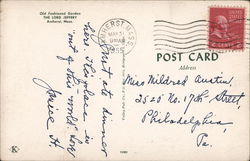 Old Fashioned Garden
THE LORD JEFFERY
Amherst, Mass.
AMHERST, MASS.
MAY 31
1955
POST CARD
Address
Out at dinner
here. This place is
"out of this world" Love
Janice H.
Miss Mildred Austin,
2520 No. 17th Street
Philadelphia,
Pa.
K